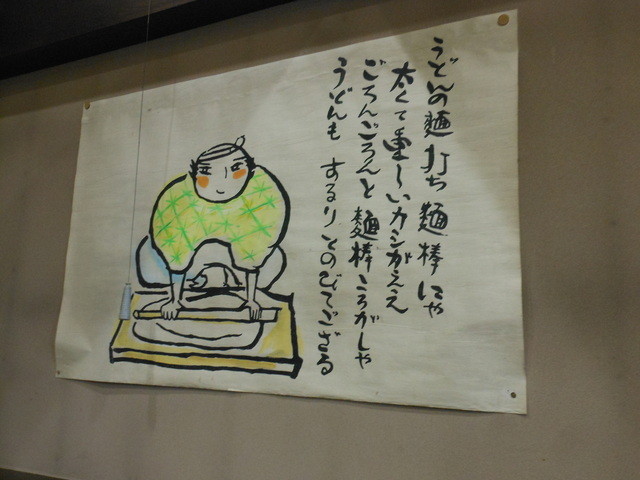 うどんの麺打ち麺棒にゃ
太くて重〜いカシがええ
ごろんごろんと麺棒ころがしゃ
うどんも するりとのびてござる